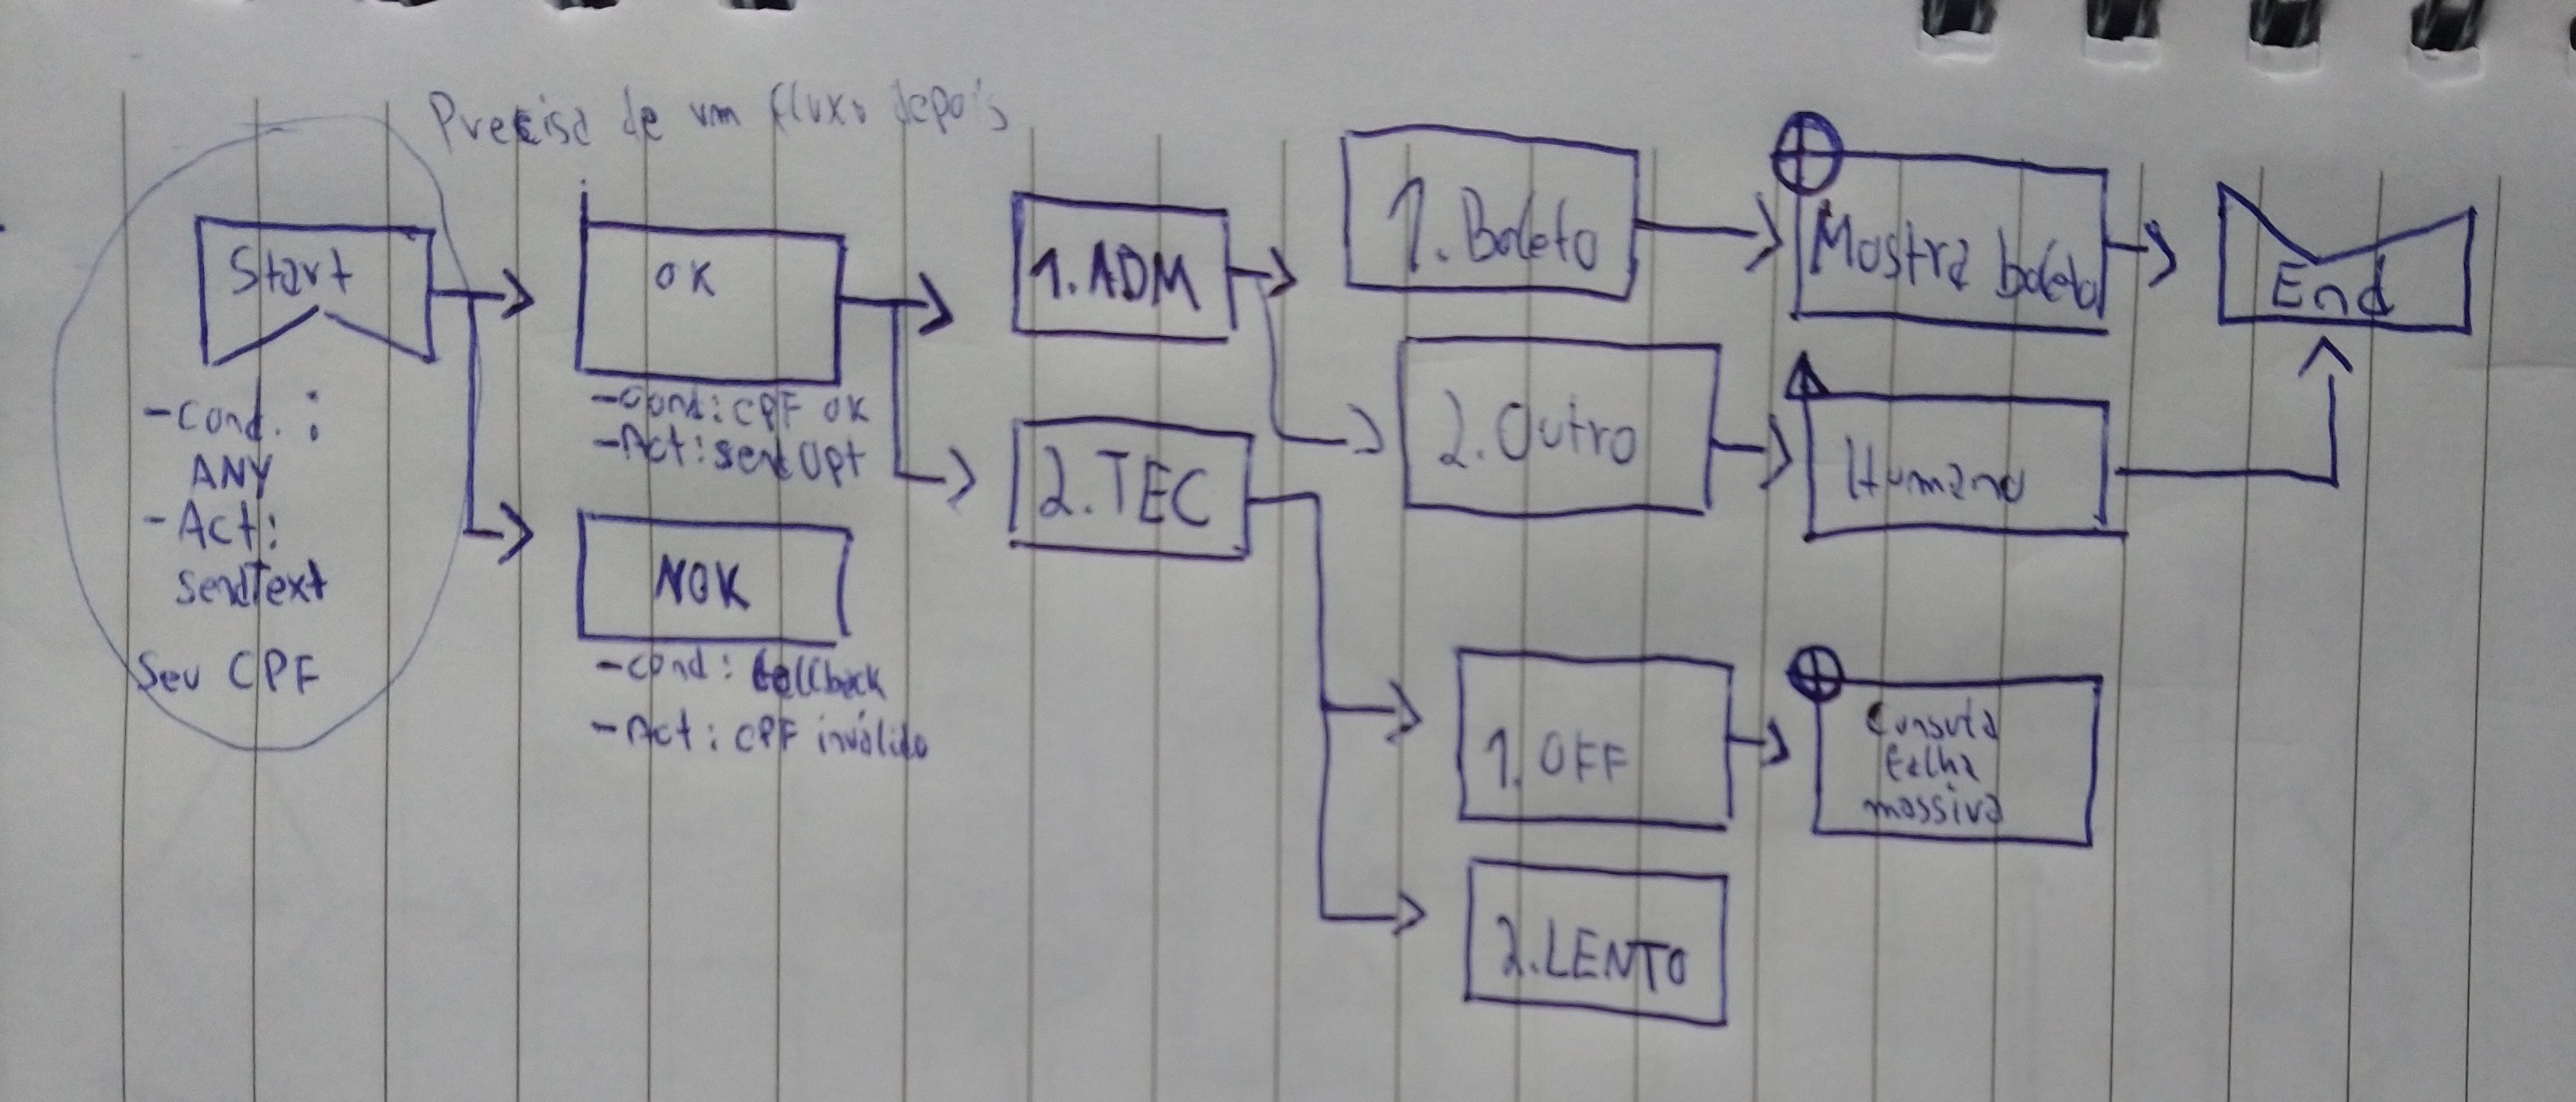 Precisa de um fluxo depois
Start
-Cond. :
ANY
-Act:
sendText
Seu CPF
OK
-Cond: CPF OK
-Act: send Opt
NOK
-cond: fallback
-Act: CPF inválido
1. ADM
2. TEC
1. Boleto
2. Outro
1. OFF
2. LENTO
Mostra boleto
Humano
falha
massiva
End